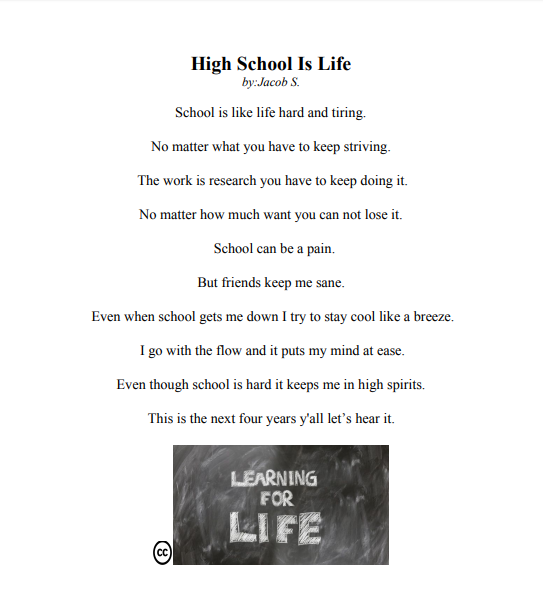 High School Is Life
by:Jacob S.
School is like life hard and tiring.
No matter what you have to keep striving.
The work is research you have to keep doing it.
No matter how much want you can not lose it.
School can be a pain.
But friends keep me sane.
Even when school gets me down I try to stay cool like a breeze.
I go with the flow and it puts my mind at ease.
Even though school is hard it keeps me in high spirits.
This is the next four years y'all let’s hear it.
LEARNING
FOR
LIFE
cc